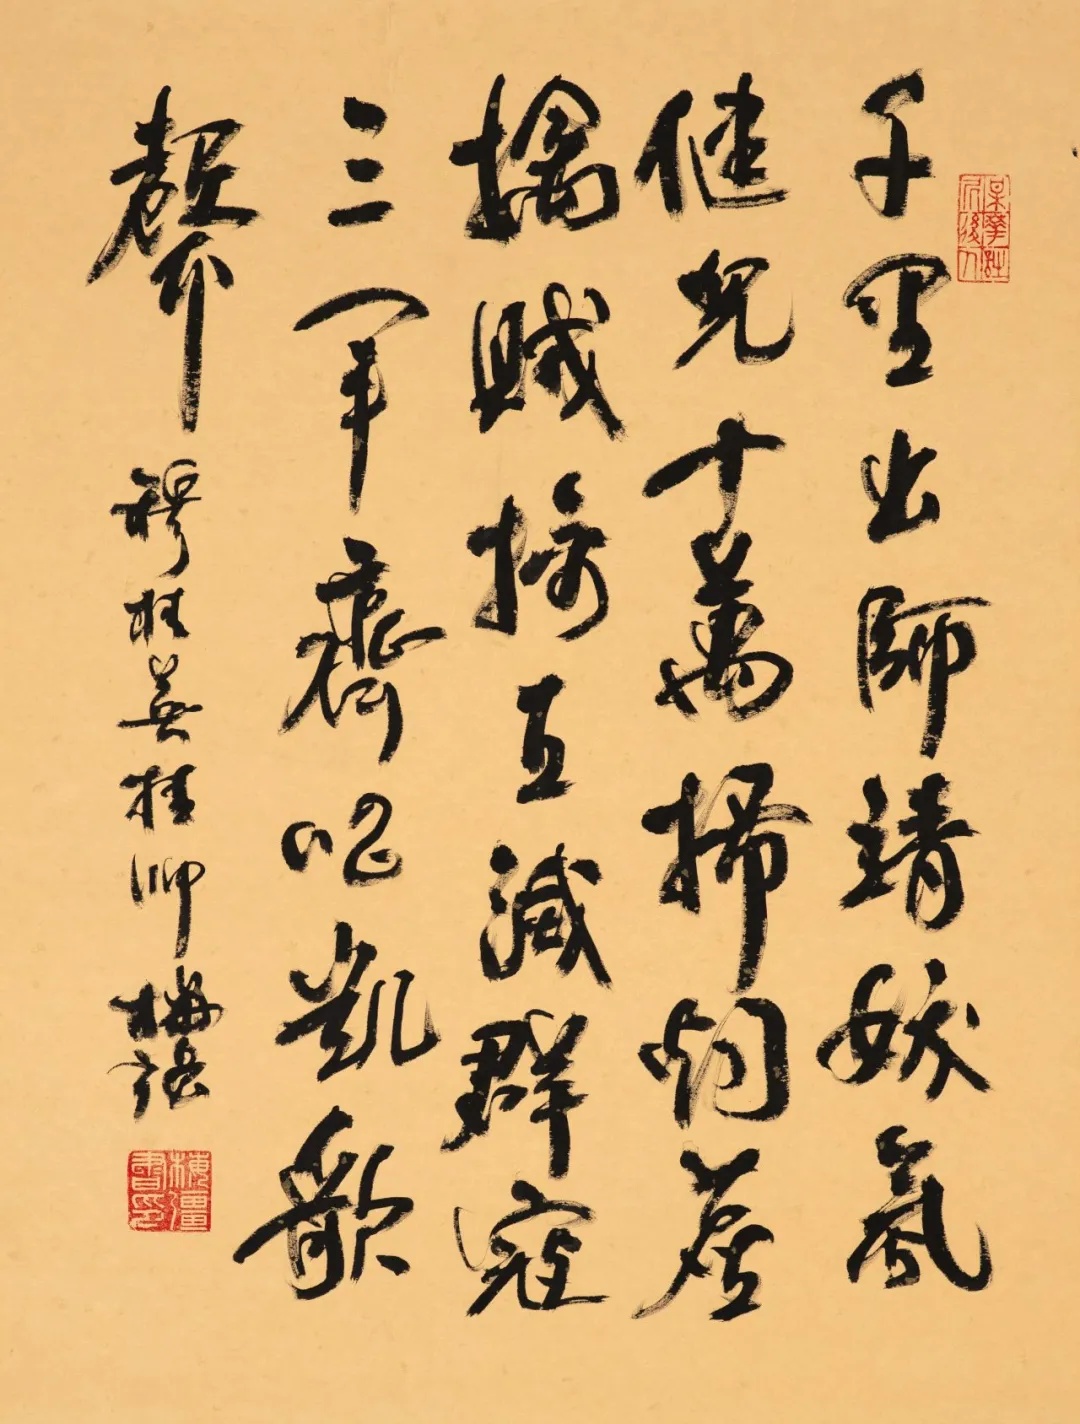 千里出師靖妖氛
健兒十萬掃烟塵
擒賊擒王滅群寇
三軍齊唱凱歌
聲 穆桂英挂帅 梅疆